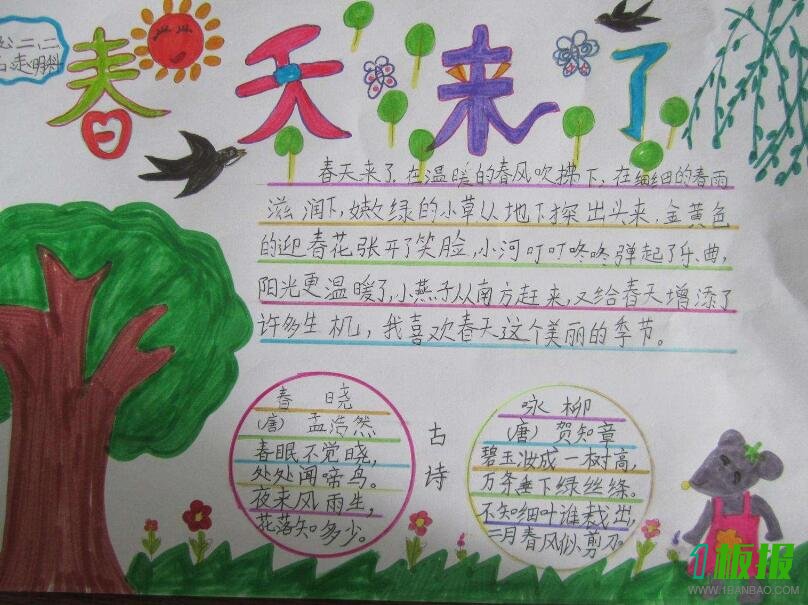 春天来了
春天来了,在温暖的春风吹拂下,在细细的春雨
滋润下,嫩々绿的小草从地下探出头来.金黄色
的迎春花张开了笑脸,小河叮叮咚咚弹起了乐曲,
阳光更温暖了,小燕子从南方赶来,又给春天增添了
许多生机,我喜欢春天这个美丽的季节。
春晓
(唐) 孟浩然
春眠不觉晓,
处处闻啼鸟。
夜来风雨生,
花落知多少。
古诗
咏柳
(唐) 贺知章
碧玉妆成一树高,
万条垂下绿丝绦。
不知细叶谁栽出,
二月春风似剪刀。
1板报
WWW.1BANBAO.COM